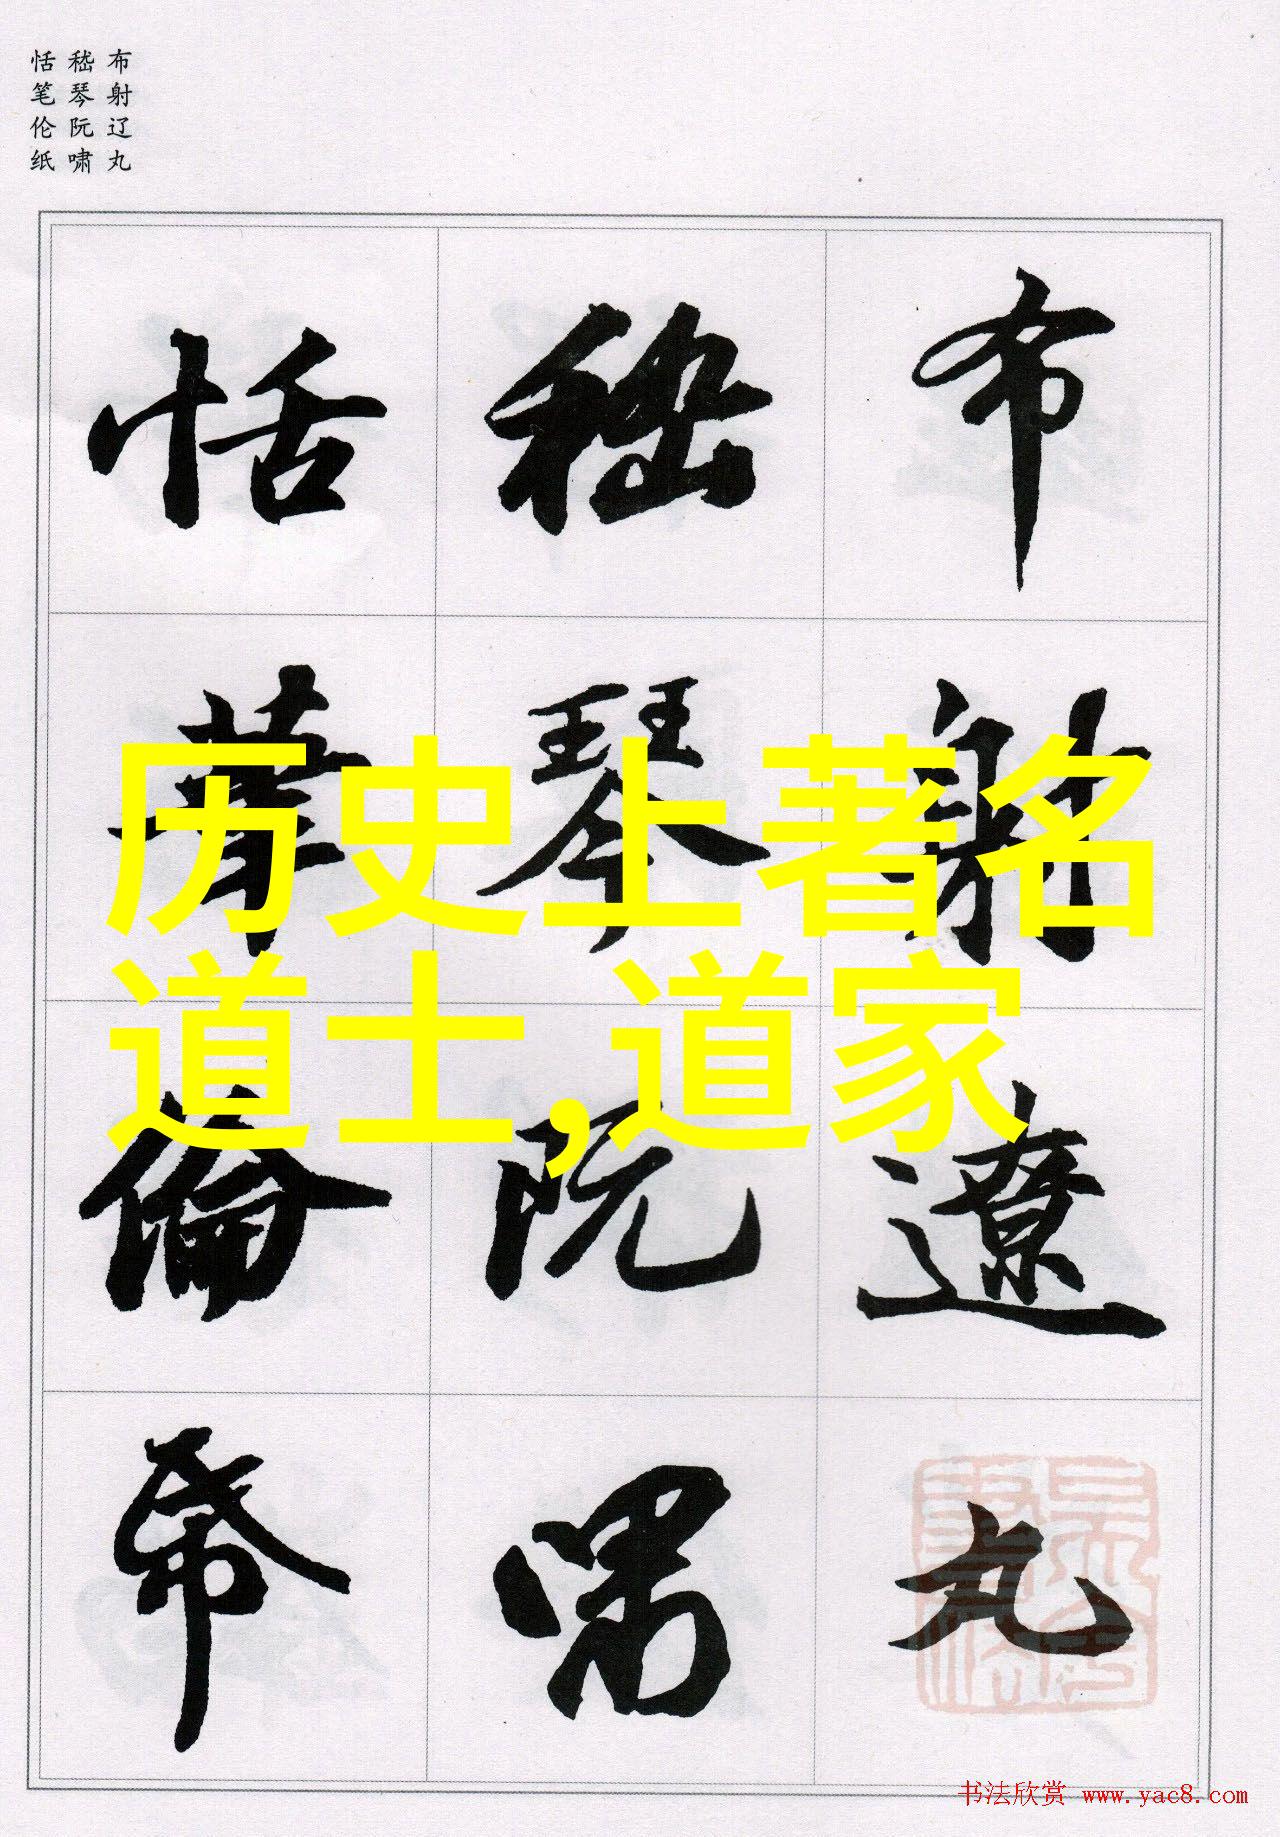 布射辽丸
嵇琴阮啸
恬笔伦纸
布射遼丸
嵇琴阮嘯
恬筆倫帋
历史上著名
道士,道家
书法欣赏 www.yac8.com